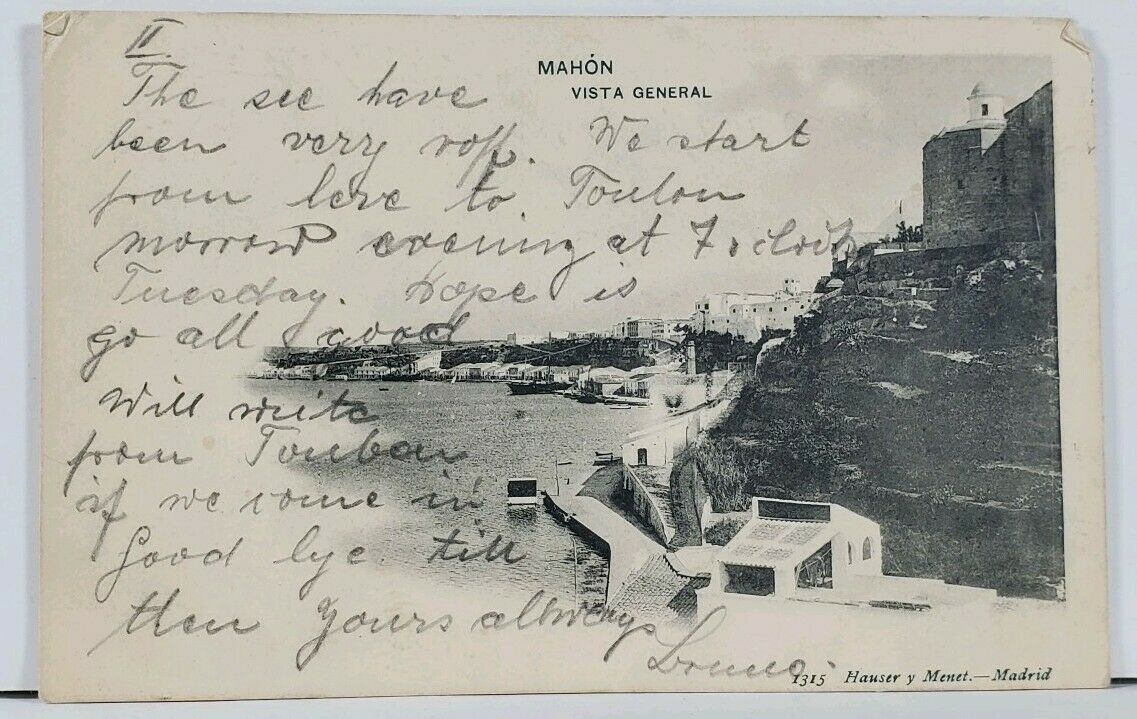 II
MAHÓN
VISTA GENERAL
The see have
been verry roff. We start
from here to Toulon
morrow evening at 7. o'clock
Tuesday. Hope is
go all good
Will write
from Toulon
if we come in
Good bye. till
then Yours allways
Bruno.
1315 Hauser y Menet.—Madrid